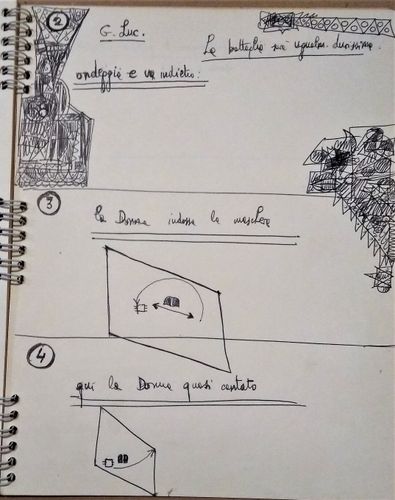 2
G. Luc.
La battaglia sarà ugualm. durissima.
ondeggia e va indietro:
3
la Donna indossa la maschera
4
qui la Donna quasi cantato